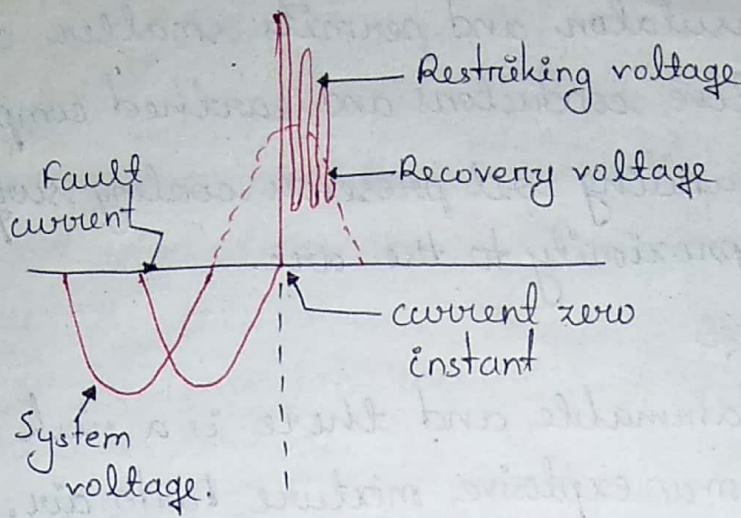 Restriking voltage
Recovery voltage
Fault
current
current zero
instant
System
voltage.